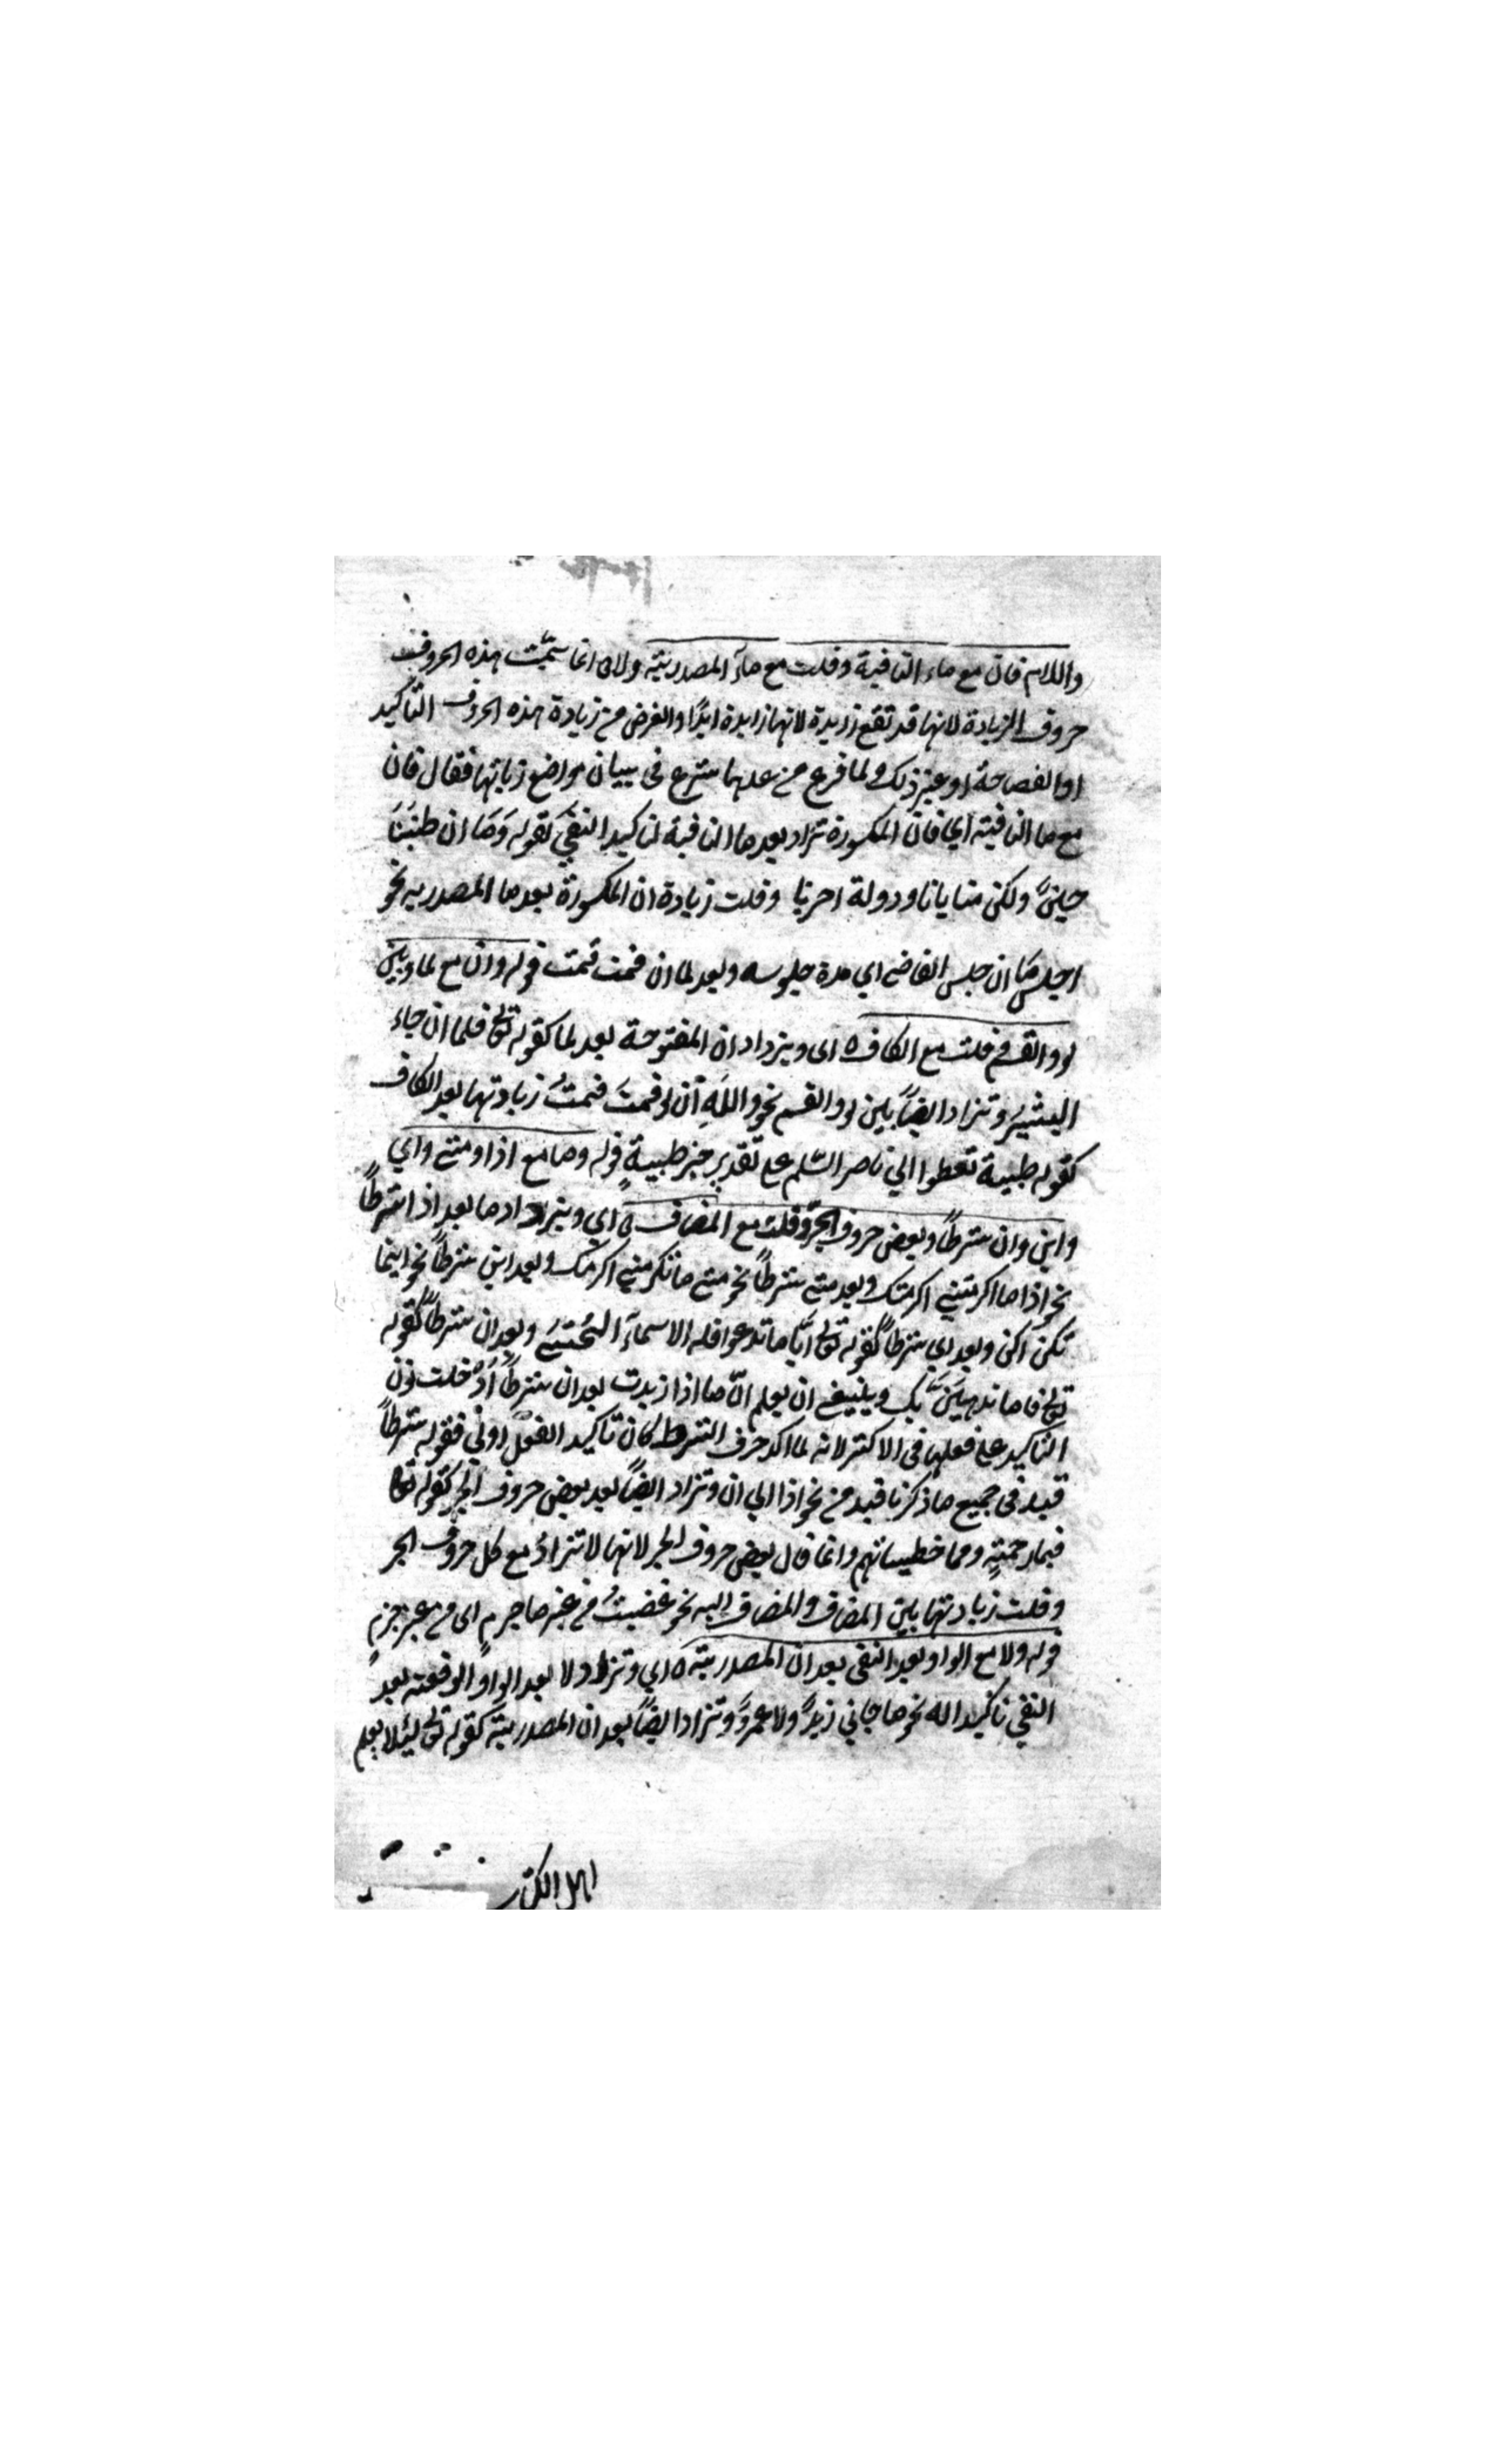 واللام فان مع ماء النافية وقلت مع مآء المصدرية ولما انما سميّت هذه الحروف
حروف الزيادة لانها قد تقع زايدة لانها زايدة ابدًا والغرض من زيادة هذه الحروف التأكيد
او الفصاحة او غير ذلك ولما فرغ من عدها شرع فى بيان مواضع زياتها فقال فان
مع ما النافية اي فان المكسورة تزاد بعد ما النافية لتاكيد النفي كقوله وَمَا ان طبّنَا
جبنٌ ولكن منايانا ودولة اخرينا وقلت زيادة ان المكسورة بعد ما المصدرية نحو
اجلس مَا ان جلس القاضي اي مدة جلوسه وبعد لما ان قمت قمت قوله وان مع لما وبين
لو والقسم وقلت مع الكاف ه اى ويزداد ان المفتوحة بعد لما كقوله تع فلما ان جاء
البشيرُ وتزاد ايضًا بين لو والقسم نحو واللَهِ أن لو قمتَ قمتُ زيادتها بعد الكاف
كقوله ظبية تعطوا الي ناصر السّلم على تقدير جر ظبيةٍ قوله وما مع اذا ومتى واي
واين وان شرطًا وبعض حروف الجرّ وقلت مع المضاف ه اي ويزاد ما بعد اذا شرطًا
نحو اذا ما اكرمتني اكرمتك وبعد متى شرطًا نحو متى ما تكرمني اكرمك وبعد اين شرطًا نحو اينما
تكن اكن وبعد اي شرطًا كقوله تع ايًّا ما تدعوا فله الاسمآء الحُسنَى وبعد ان شرطًا كقوله
تع فاما نذهبَنَّ بك وينبغي ان يعلم انّ ما اذا زيدت بعد ان شرطًا أدْخلت نون
التاكيد على فعلها فى الاكثر لانه لما اكد حرف الشرط كان تاكيد الفعل اولى فقوله شرطًا
قيد فى جميع ما ذكرنا قيد من نحو اذا الي ان وتزاد ايضًا بعد بعض حروف الجر كقوله تع
فبما رحمةٍ ومما خطيياتهم وانما قال بعض حروف الجر لانها لا تزادُ مع كل حروف الجر
وقلت زيادتها بين المضاف والمضاف اليه نحو غضبتُ من غير ما جرمٍ اى من غير جرمٍ
قوله ولا مع الواو بعد النفى بعد ان المصدرية ه اي وتزاد لا بعد الواو الوقعة بعد
النفي تاكيدا له نحو ما جاني زيدٌ ولا عمروٌ وتزاد ايضًا بعد ان المصدرية كقوله تع ليئلا يعلم
اهل الكتب